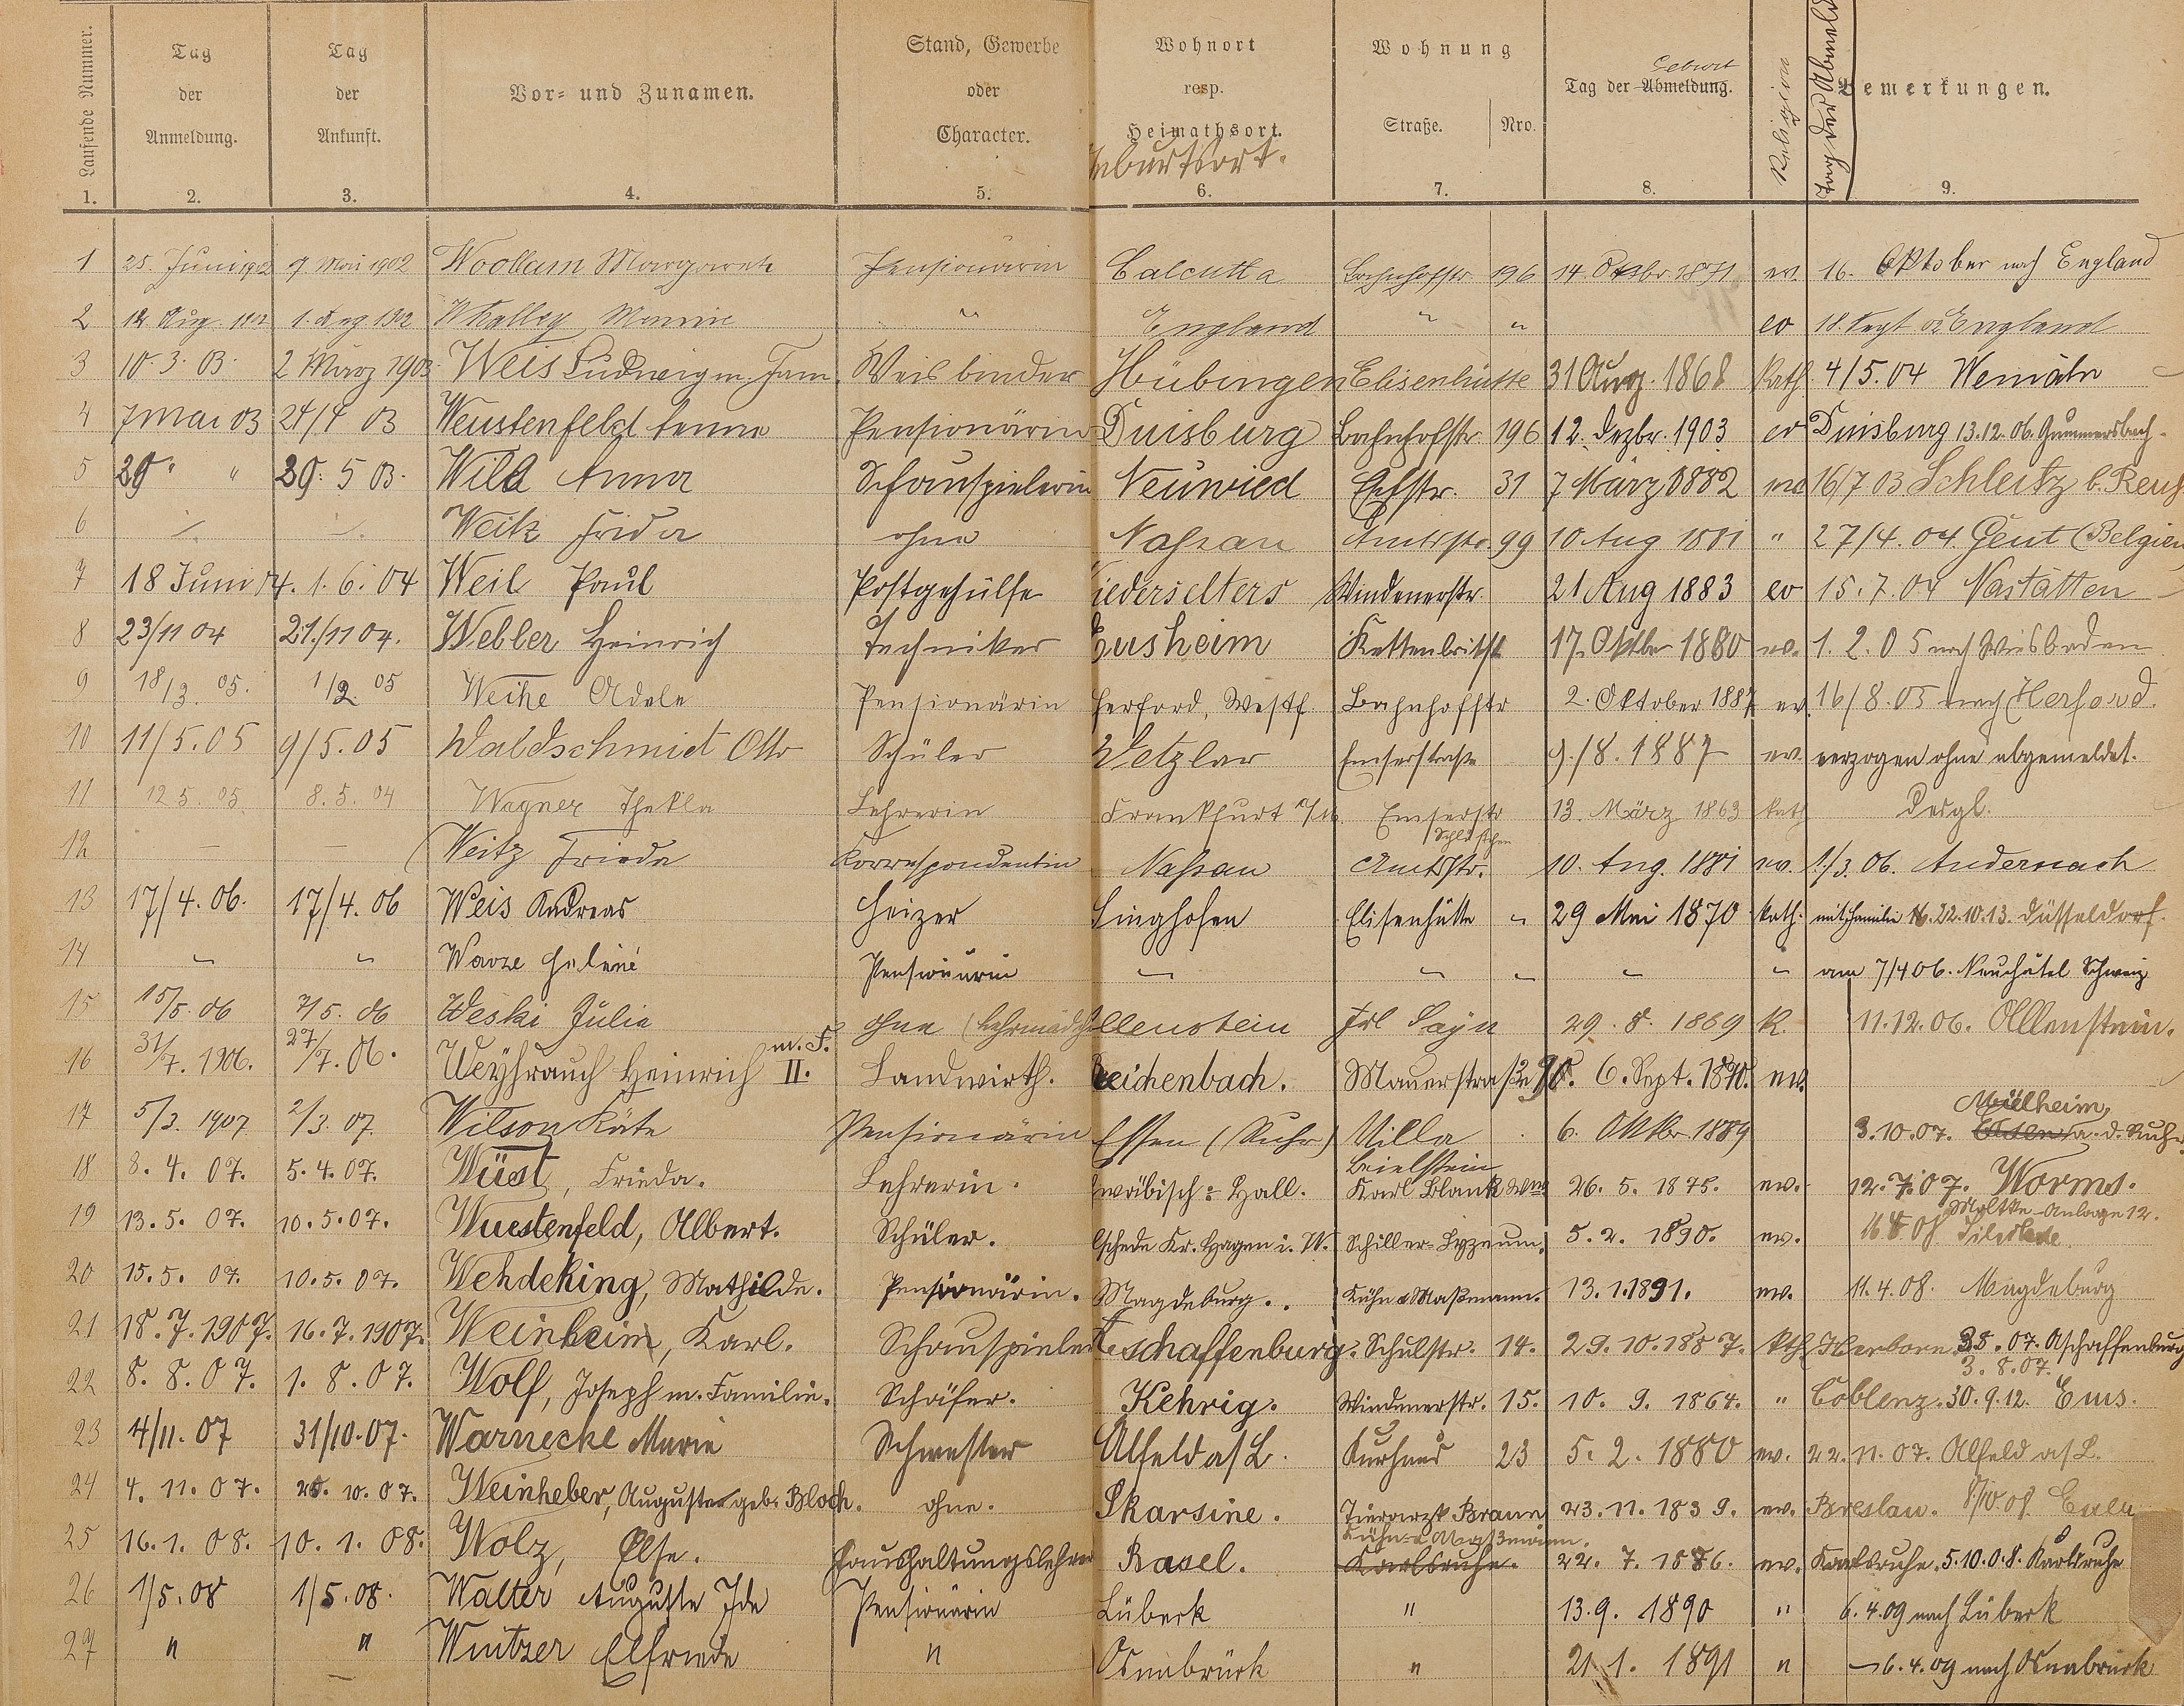 Laufende Nummer. Tag der Anmeldung. Tag der Ankunft. Vor- und Zunamen. Stand, Gewerbe oder Character. Wohnort resp. Heimathsort. Geburtsort. Wohnung Straße. Nro. Tag der Abmeldung. Geburt Religion Tag der Abmeld Bemerkungen.
1. 2. 3. 4. 5. 6. 7. 8. 9.
1 25. Juni 1902 9 Mai 1902 Woollam Margarete Pensionärin Calcutta Bahnhofstr 196 14. Oktbr. 1871 ev. 16. Oktober nach England
2 12 Aug. 1902 1. Aug 1902 Whalley " England " " ev 18. Sept 02 England
3 10. 3. 03. 2 März 1903. Weis Ludwig m. Fam. Weisbinder Hübingen Elisenhütte 31 Aug. 1868 kath. 4/5. 04
4 7 Mai 03 24/4 03 Weustenfeld Pensionärin Duisburg Bahnhofstr. 196 12. Dezbr. 1903 ev Duisburg 13.12.06. Gummersbach.
5 29 " " 29. 5 03. Wild Anna Schauspielerin Neuwied 31 7 März 1882 16/7 03 Schleitz b. Reuß
6 Weitz Frida ohne Nassau Amtsstr. 99 10 Aug 1881 " 27/4. 04. Gent (Belgien
7 18 Juni 04. 1. 6. 04 Weil Paul Postgehülfe iederselters Windenerstr. 21 Aug 1883 ev 15. 7. 04 Nastätten
8 23/11 04 21./11 04. Webler Heinrich Techniker Eusheim 17. Oktbr 1880 ev. 1. 2. 05 nach Wiesbaden
9 18/3. 05. 1/2. 05 Weihe Adele Pensionärin Herford, Westf. Bahnhofstr 2. Oktober 1887 ev. 16/8. 05 nach Herford.
10 11/5. 05 9/5. 05 Waldschmidt Otto Schüler Wetzlar Emserstraße 9./8. 1887 ev. verzogen ohne abgemeldet.
11 12 5. 05. 8. 5. 04 Wagner Thekla Lehrerin Frankfurt a/M. Emserstr 13. März 1863 kath Desgl.
12 — — (Weitz Frieda Korrespondentin Nassau Amtsstr. 10. Aug. 1881 ev. 1./3. 06. Andernach
13 17/4. 06. 17/4. 06 Weis Andreas Heizer Singhofen Elisenhütte " 29 Mai 1870 kath. mit Familie 22.10.13. Düsseldorf.
14 " " Pensionärin " " " " " am 7/4 06. Neuchâtel Schweiz
15 15/5. 06 7/5. 06 Weski Julie ohne (Lehrmädch llenstein Frl Sayn 29. 8. 1889 K. 11.12.06. Allenstein.
16 31/7. 1906. 27/7. 06. Weyhrauch Heinrich II. m. F. Landwirth. Reichenbach. Mauerstraße 6. Sept. 1870. ev.
17 5/3. 1907 2/3. 07. Wilson Käte Pensionärin Essen (Ruhr) Villa Beielstein 6. Oktbr. 1889 3.10.07. Mülheim, a. d. Ruhr.
18 8. 4. 07. 5. 4. 07. Wüst, Frieda. Lehrerin. wäbisch-Hall. Karl Blank Wwe 26. 5. 1875. ev. 12. 7. 07. Worms. Moltke-Anlage 12.
19 13. 5. 07. 10. 5. 07. Wuestenfeld, Albert. Schüler. lschede Kr. Hagen i. W. Schiller-Lyzeum. 5. 2. 1890. ev.
20 15. 5. 07. 10. 5. 07. Wehdeking, Mathilde. Pensionärin. Magdeburg. Kühn & Maßmann. 13. 1. 1891. ev. 11. 4. 08. Magdeburg
21 18. 7. 1907. 16. 7. 1907. Weinheim, Karl. Schauspieler Aschaffenburg. Schulstr. 14. 29. 10. 1887. kth. Herborn 07. Aschaffenburg 3. 8. 07.
22 8. 8. 07. 1. 8. 07. Wolf, Joseph m. Familie. Schäfer. Kehrig. Windenerstr. 15. 10. 9. 1864. " Coblenz. 30. 9. 12. Ems.
23 4/11. 07 31/10. 07. Warnecke Marie Schwester Alfeld a/L. Kurhaus 23 5. 2. 1880 ev. 22. 11. 07. Alfeld a/L.
24 4. 11. 07. 10. 07. Weinheber, Auguste geb. Bloch. ohne. Skarsine. Tierarzt Braun 23. 11. 1839. ev. Breslau.
25 16. 1. 08. 10. 1. 08. Wolz, Else. Haushaltungslehrer Basel. Kühn & Maßmann. Karlsruhe. 22. 7. 1886. ev. Karlsruhe. 5. 10. 08. Karlsruhe
26 1/5. 08 1/5. 08. Walter Auguste Ida Pensionärin Lübeck " 13. 9. 1890 " 6. 4. 09 nach Lübeck
27 " " Elfriede " Osnabrück " 21. 1. 1891 " 6. 4. 09 nach Osnabrück